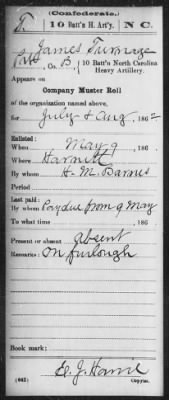 (Confederate.)
T 10 Batt'n H. Art'y. N C.
James Turnage
Pvt, Co. B, 10 Batt'n North Carolina Heavy Artillery.
Appears on
Company Muster Roll
of the organization named above,
for July & Aug, 186
Enlisted:
When May 9, 186
Where Harnett
By whom H. M. Barnes
Period
Last paid:
By whom Pay due from 9 May
To what time , 186
Present or absent absent
Remarks: On furlough
Book mark:
(642) Copyist.